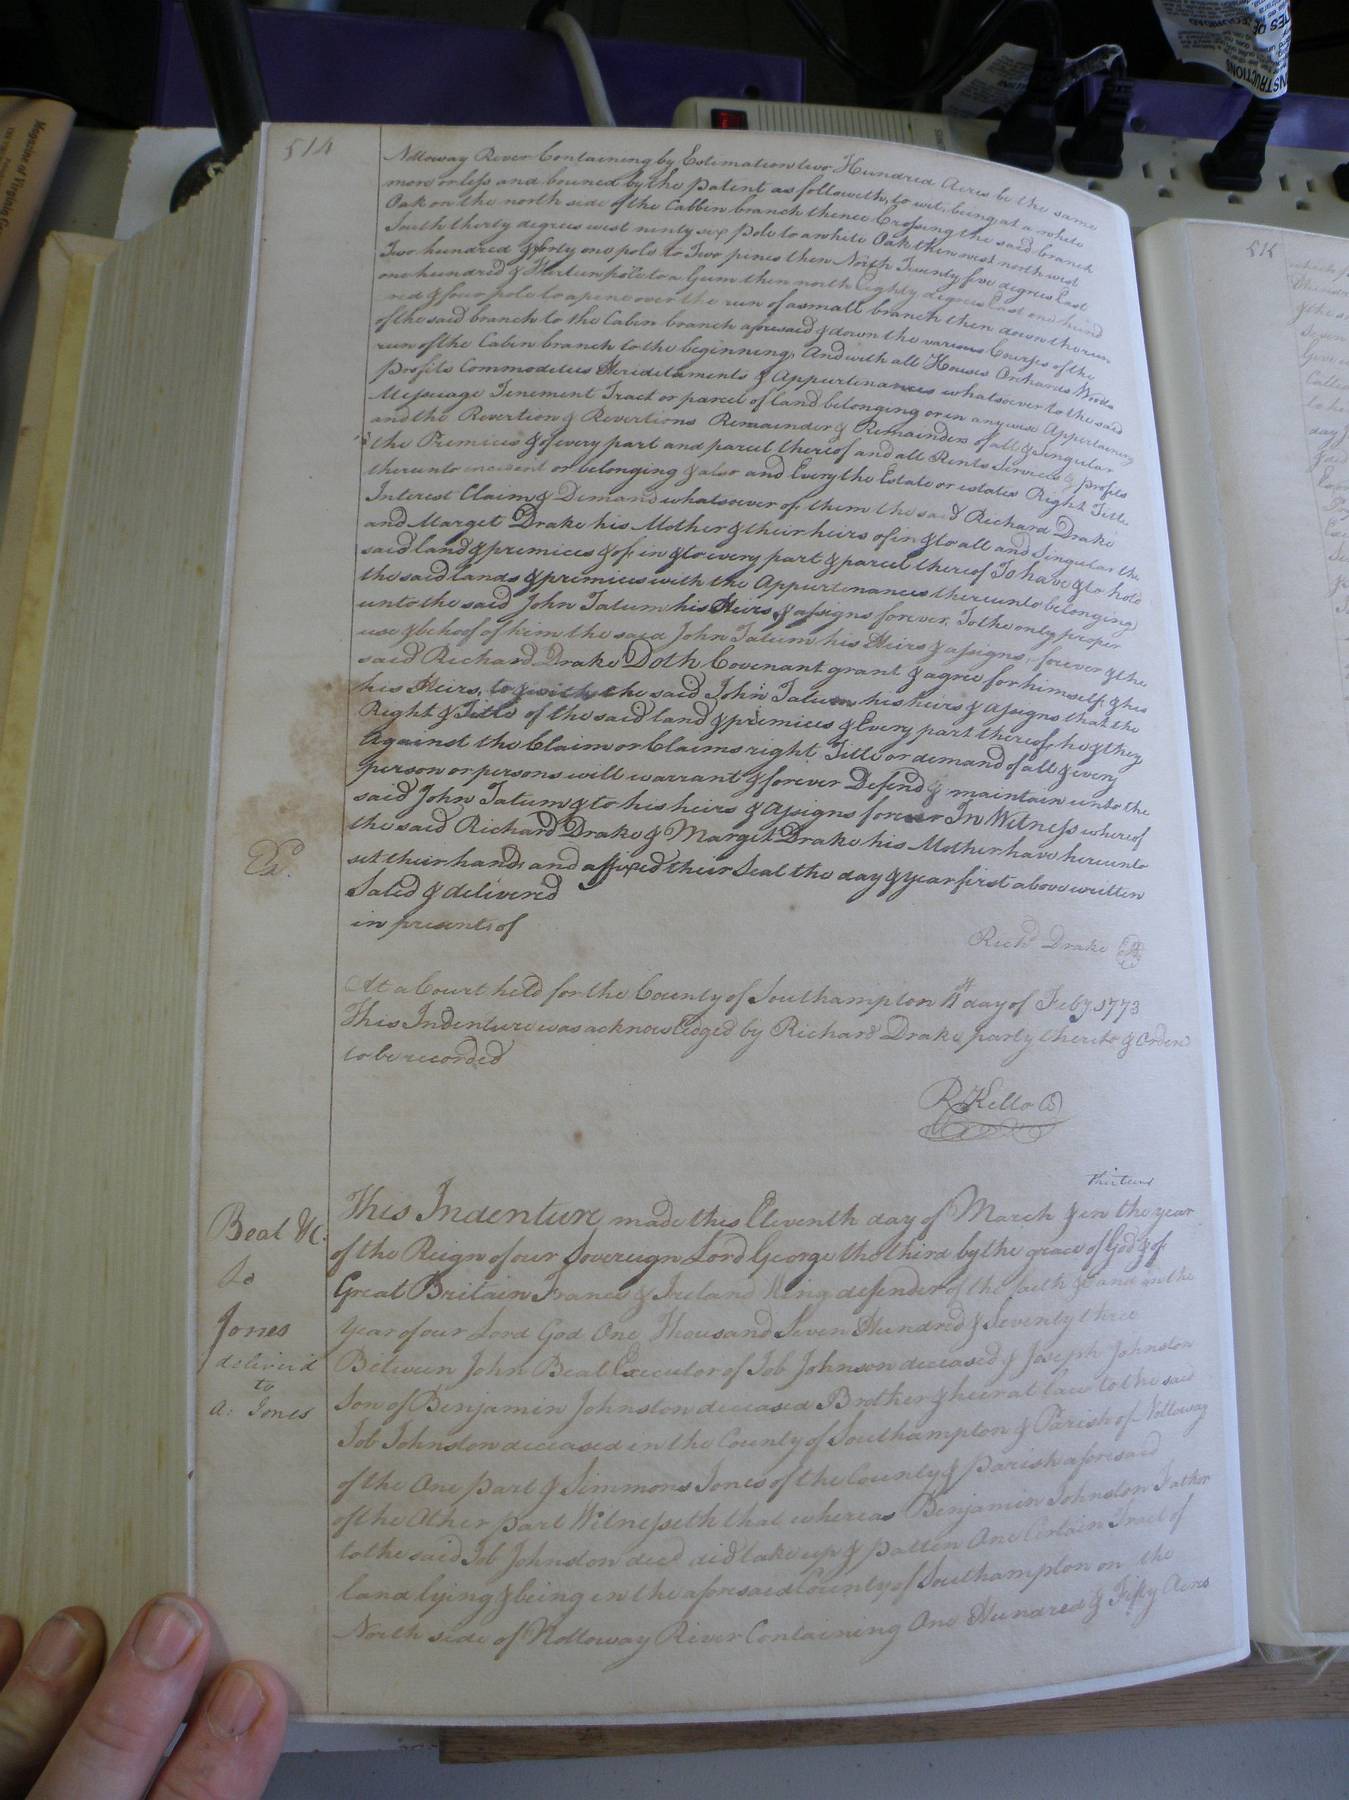 514
Nottoway River Containing by Estimation two Hundred Acres be the same
more or less and bouned by the patent as followeth, to wit, being at a white
Oak on the north side of the Cabbin branch thence Crossing the said branch
South thirty degrees west ninety six pole to a white Oak then west north west
Two hundred & forty one pole to Two pines then North Twenty five degrees East
one hundred & thirteen pole to a Gum then north Eighty degrees East one hund
red & four pole to a pine over the run of a small branch then down the run
of the said branch to the Cabin branch aforesaid & down the various Courses of the
run of the Cabin branch to the beginning, And with all Houses Orchards Woods
profits Commodities Hereditaments & Appurtenances whatsoever to the said
Messuage Tenement Tract or parcel of land belonging or in any wise Appertaining
and the Revertion & Revertions Remainder & Remainders of all & Singular
the Premices & of every part and parcel thereof and all Rents Services & profits
thereunto incident or belonging & also and Every the Estate or estates Right Title
Interest Claim & Demand whatsoever of them the said Richard Drake
and Marget Drake his Mother & their heirs of in & to all and Singular the
said land & premices & of in & to every part & parcel thereof To have & to hold
the said lands & premices with the Appurtenances thereunto belonging
unto the said John Tatum his Heirs & assigns forever, To the only proper
use & behoof of him the said John Tatum his Heirs & assigns, forever & the
said Richard Drake Doth Covenant grant & agree for himself & his
his Heirs, to & with the said John Tatum his heirs & assigns that the
Right & Title of the said land & premices & Every part thereof, he & they
Against the Claim or Claims right Title or demand of all & every
person or persons will warrant & forever Defend & maintain unto the
said John Tatum & to his heirs & assigns forever In Witness whereof
the said Richard Drake & Marget Drake his Mother have hereunto
Ex.
set their hands and affixed their Seal the day & year first above written
Saled & delivered
in presents of
Richd Drake
At a Court held for the County of Southampton 11th day of Feby. 1773
This Indenture was acknowledged by Richard Drake party thereto & Ordered
to be recorded
R Kello
thirteen
This Indenture made this Eleventh day of March & in the year
Beal &c.
of the Reign of our Sovereign Lord George the third by the grace of God & of
to
Great Britain France & Ireland King defender of the faith & and in the
Jones
Year of our Lord God One Thousand Seven Hundred & Seventy three
deliver'd
Between John Beal Executor of Job Johnson deceased & Joseph Johnston
to
A: Jones
Son of Benjamin Johnston deceased Brother & heir at law to the said
Job Johnston deceased in the County of Southampton & Parish of Nottoway
of the One part & Simmons Jones of the County & parish aforesaid
of the Other part Witnesseth that whereas Benjamin Johnston Father
to the said Job Johnston decd did take up & patten One Certain Tract of
land lying & being in the aforesaid County of Southampton on the
North side of Nottoway River Containing One Hundred & Fifty Acres
515
Magazine of Virginia